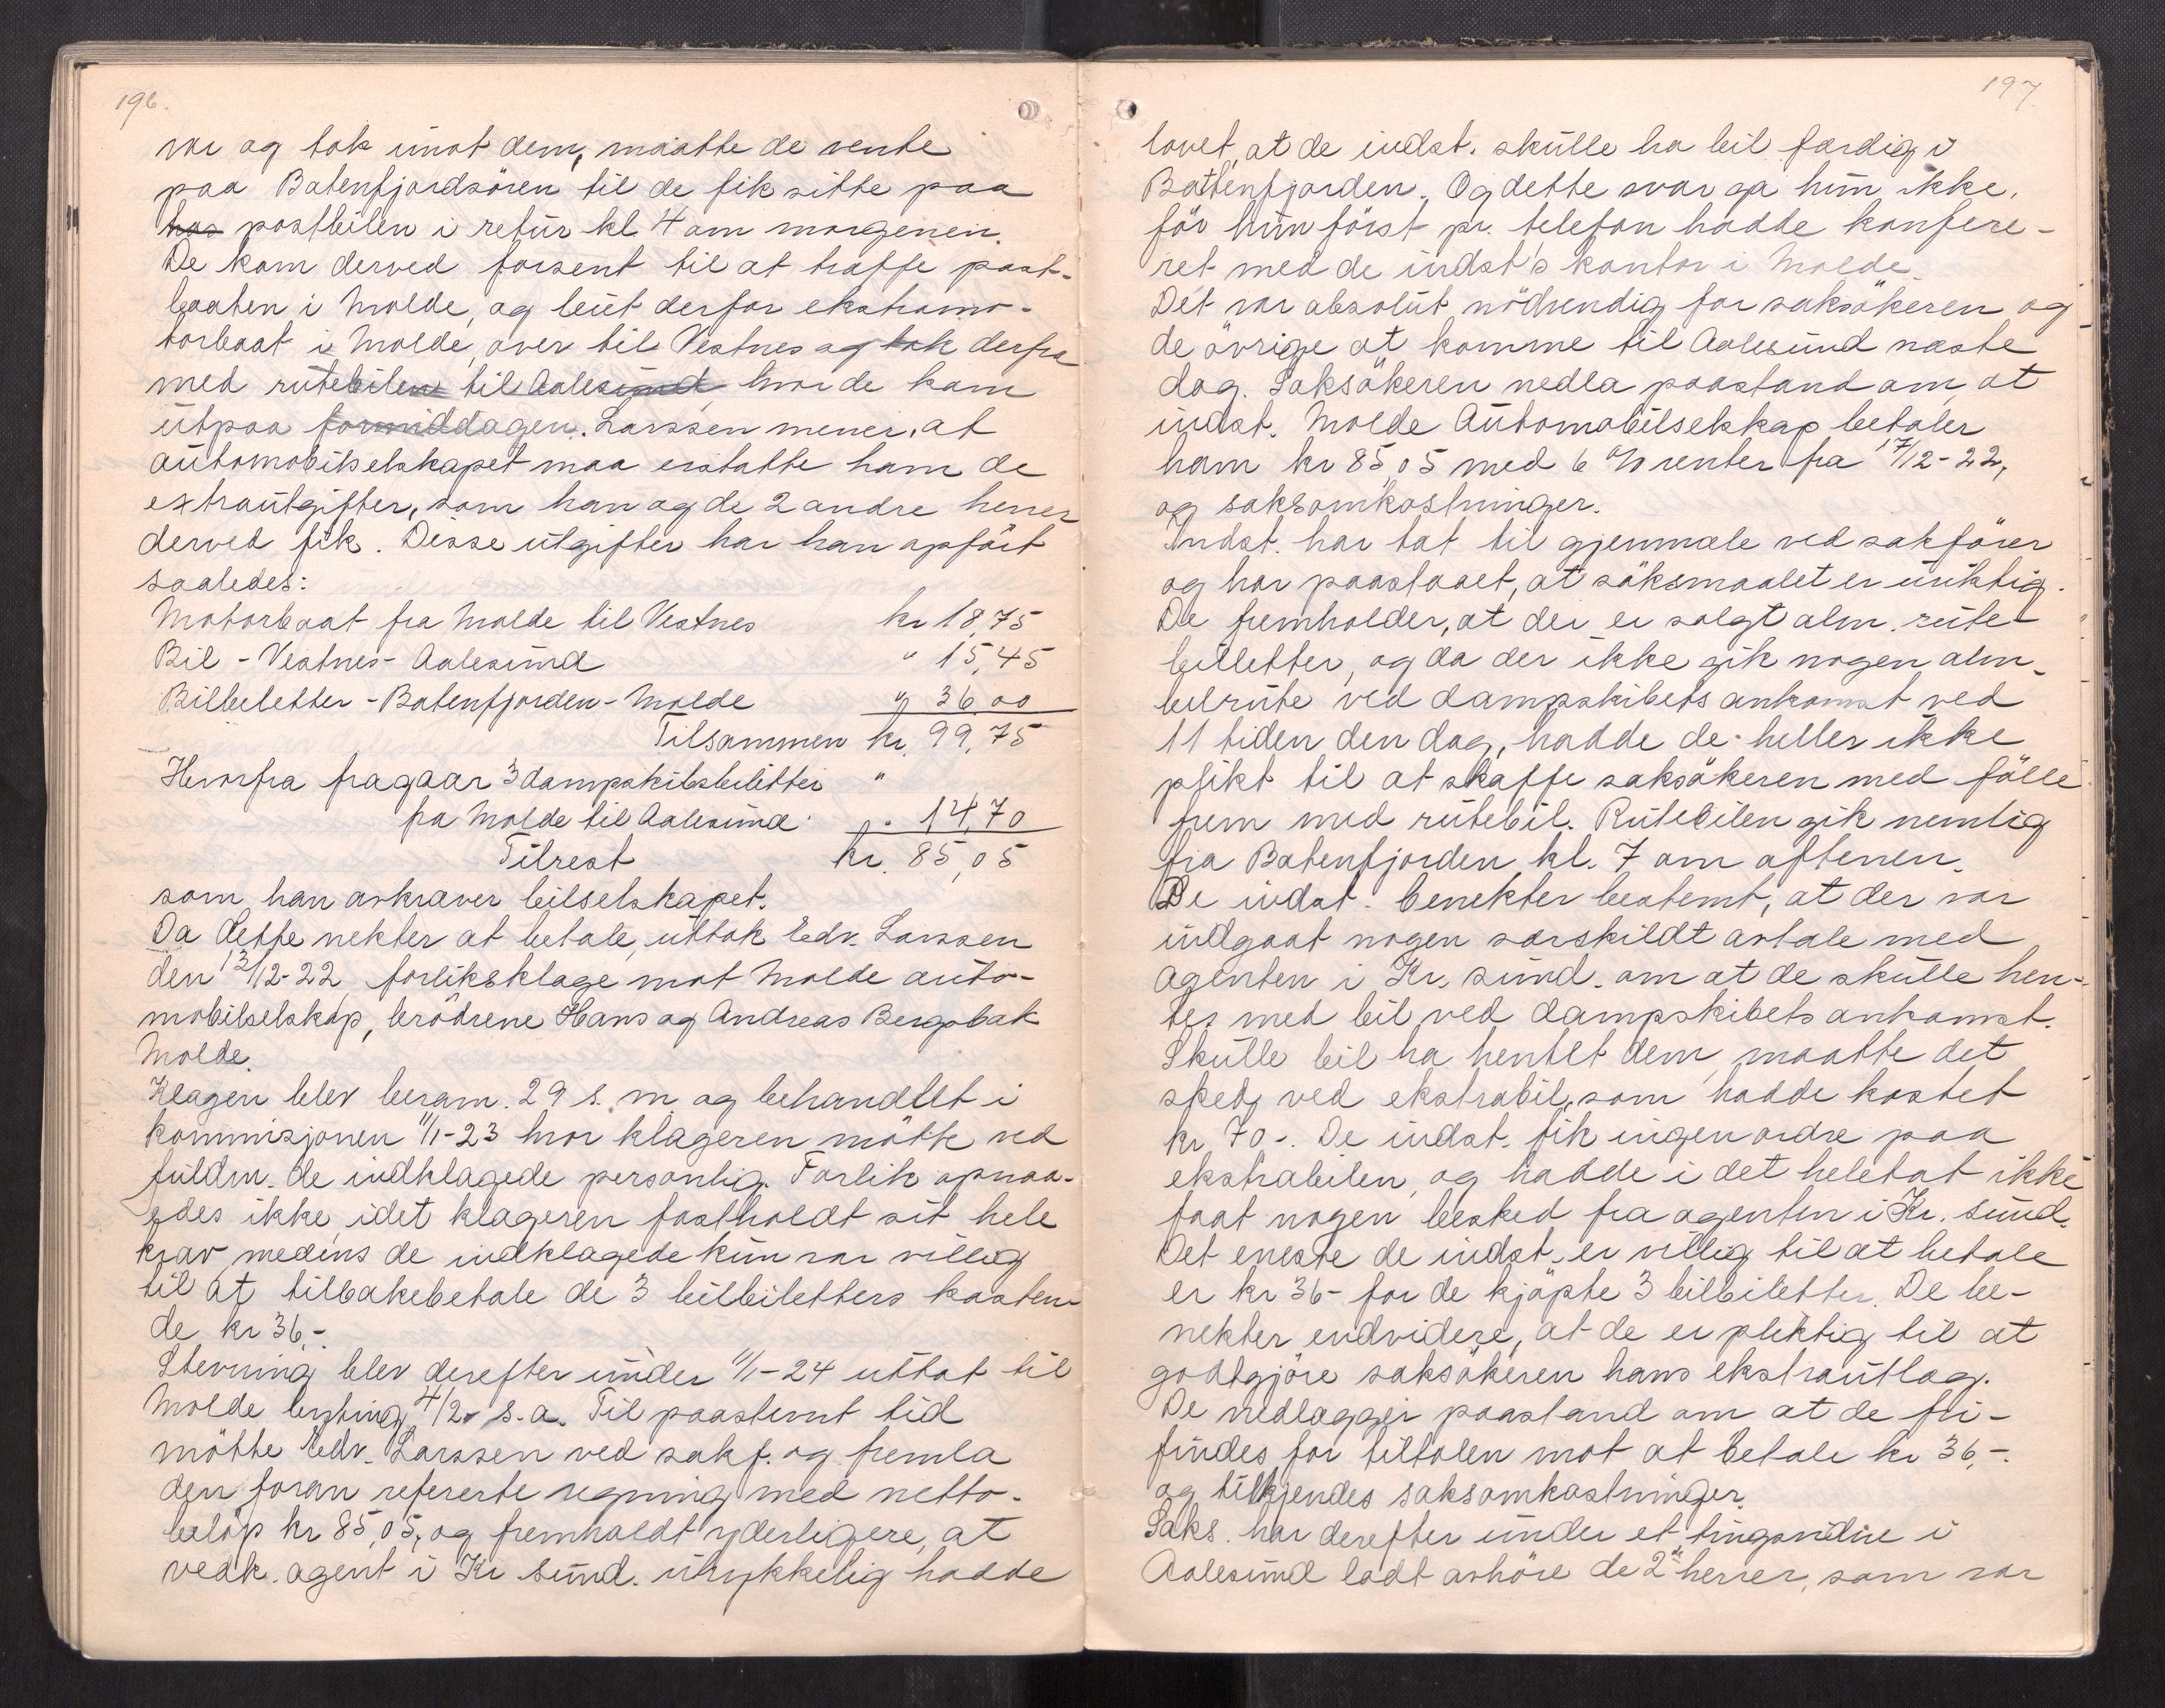 196.
var og tok imot dem, maatte de vente
paa Batenfjordsören til de fik sitte paa
hos postbilen i retur kl 4 om morgenen.
De kom derved forsent til at træffe post-
baaten i Molde, og leiet derfor ekstramo-
torbaat i Molde over til Vestnes og tok derfra
med rutebilen til Aalesund, hvor de kom
utpaa formiddagen. Larssen mener, at
automobilselskapet maa erstatte ham de
extrautgifter, som han og de 2 andre herrer
derved fik. Disse utgifter har han opfört
saaledes:
Motorbaat fra Molde til Vestnes kr 18,75
Bil - Vestnes - Aalesund " 15,45
Bilbiletter - Batenfjorden - Molde " 36 00
Tilsammen kr. 99,75
Hvorfra fragaar 3 dampskibsbiletter "
fra Molde til Aalesund " 14,70
Tilrest kr. 85,05
som han avkræver bilselskapet.
Da dette nekter at betale, uttok Edv. Larssen
den 13/12-22 forliksklage mot Molde auto-
mobilselskap, brödrene Hans og Andreas Bergsbak
Molde.
Klagen blev beram. 29 s. m. og behandlet i
kommisjonen 11/1-23 hvor klageren mötte ved
fuldm. de indklagede personlig. Forlik opnaa-
edes ikke, idet klageren fastholdt sit hele
krav, medens de indklagede kun var villig
til at tilbakebetale de 3 bilbiletters kosten-
de kr 36,-
Stevning blev derefter under 11/1-24 uttat til
Molde byting 4/2 s. a. Til paastemt tid
mötte Edv. Larssen ved sakf. og fremla
den foran refererte regning med netto-
belöp kr 85,05, og fremholdt yderligere, at
vedk. agent i Kr. sund. utrykkelig hadde
197
lovet, at de indst. skulle ha bil færdig i
Battenfjorden. Og dette svar ga hun ikke,
för hun först pr. telefon hadde konfere-
ret med de indst's kontor i Molde.
Det var absolut nödvendig for saksökeren og
de övrige at komme til Aalesund næste
dag. Saksökeren nedla paastand om, at
indst. Molde Automobilselskap betaler
ham kr 85,05 med 6 % renter fra 17/12-22,
og saksomkostninger.
Indst. har tat til gjenmæle ved sakförer
og har paastaaet, at söksmaalet er uriktig.
De fremholder, at der er solgt alm. rute-
billetter, og da der ikke gik nogen alm.
bilrute ved dampskibets ankomst ved
11 tiden den dag, hadde de heller ikke
plikt til at skaffe saksökeren med fölle
frem med rutebil. Rutebilen gik nemlig
fra Batenfjorden kl. 7 om aftenen.
De indst. benekter bestemt, at der var
indgaat nogen særskildt avtale med
agenten i Kr. sund. om at de skulle hen-
tes med bil ved dampskibets ankomst.
Skulle bil ha hentet dem, maatte det
sked ved ekstrabil, som hadde kostet
kr 70-. De indst. fik ingen ordre paa
ekstrabilen, og hadde i det heletat ikke
faat nogen besked fra agenten i Kr. sund.
Det eneste de indst. er villig til at betale
er kr 36- for de kjöpte 3 bilbiletter. De be-
nekter endvidere, at de er pliktig til at
godtgjöre saksökeren hans ekstrautlæg.
De nedlægger paastand om at de fri-
findes for tiltalen mot at betale kr 36,-.
og tilkjendes saksomkostninger.
Saks. har derefter under et tingsvidne i
Aalesund ladt avhöre de 2de herrer, som var